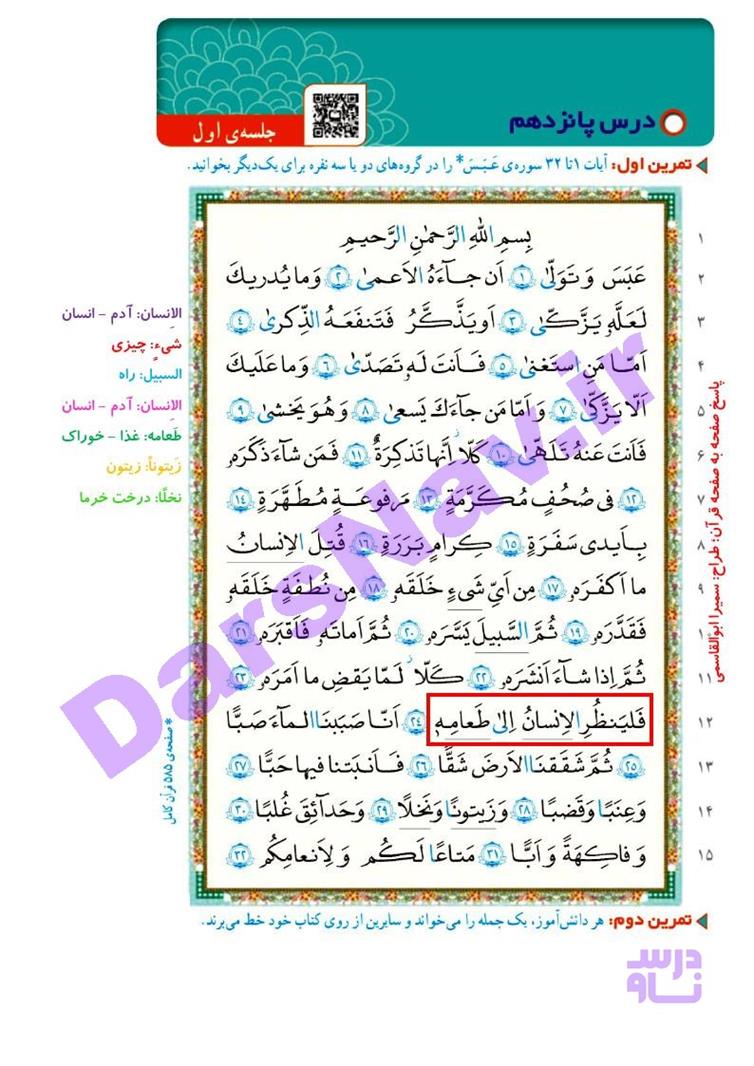 درس پانزدهم
جلسه‌ی اول
تمرین اول: آیات ۱ تا ۳۲ سوره‌ی عَبَسَ* را در گروه‌های دو یا سه نفره برای یک‌دیگر بخوانید.
۱ بِسمِ اللهِ الرَّحمٰنِ الرَّحیمِ
۲ عَبَسَ وَ تَوَلّىٰ ۱ اَن جاءَهُ الاَعمىٰ ۲ وَ ما یُدریكَ
۳ لَعَلَّهٗ یَزَّكّىٰ ۳ اَو یَذَّكَّرُ فَتَنفَعَهُ الذِّكرىٰ ۴
۴ اَمّا مَنِ استَغنىٰ ۵ فَاَنتَ لَهٗ تَصَدّىٰ ۶ وَ ما عَلَیكَ
۵ اَلّا یَزَّكّىٰ ۷ وَ اَمّا مَن جاءَكَ یَسعىٰ ۸ وَ هُوَ یَخشىٰ ۹
۶ فَاَنتَ عَنهُ تَلَهّىٰ ۱۰ كَلّا اِنَّها تَذكِرَةٌ ۱۱ فَمَن شاءَ ذَكَرَهٗ
۷ ۱۲ فى صُحُفٍ مُكَرَّمَةٍ ۱۳ مَرفوعَةٍ مُطَهَّرَةٍ ۱۴
۸ بِاَیدى سَفَرَةٍ ۱۵ كِرامٍ بَرَرَةٍ ۱۶ قُتِلَ الاِنسانُ
۹ ما اَكفَرَهٗ ۱۷ مِن اَىِّ شَىءٍ خَلَقَهٗ ۱۸ مِن نُطفَةٍ خَلَقَهٗ
۱۰ فَقَدَّرَهٗ ۱۹ ثُمَّ السَّبیلَ یَسَّرَهٗ ۲۰ ثُمَّ اَماتَهٗ فَاَقبَرَهٗ ۲۱
۱۱ ثُمَّ اِذا شاءَ اَنشَرَهٗ ۲۲ كَلّا لَمّا یَقضِ ما اَمَرَهٗ ۲۳
۱۲ فَلیَنظُرِ الاِنسانُ اِلىٰ طَعامِهٖ ۲۴ اَنّا صَبَبنَا الماءَ صَبًّا
۱۳ ۲۵ ثُمَّ شَقَقنَا الاَرضَ شَقًّا ۲۶ فَاَنبَتنا فیها حَبًّا ۲۷
۱۴ وَ عِنَبًا وَ قَضبًا ۲۸ وَ زَیتونًا وَ نَخلًا ۲۹ وَ حَدائِقَ غُلبًا ۳۰
۱۵ وَ فاكِهَةً وَ اَبًّا ۳۱ مَتاعًا لَكُم وَ لِاَنعامِكُم ۳۲
الاِنسان: آدم - انسان
شیءٍ: چیزی
السبیل: راه
الانسان: آدم - انسان
طَعامه: غذا - خوراک
زَیتوناً: زیتون
نخلًا: درخت خرما
پاسخ صفحه به صفحه قرآن: طراح: سمیرا ابوالقاسمی
* صفحه‌ی ۵۸۵ قرآن کامل
تمرین دوم: هر دانش‌آموز، یک جمله را می‌خواند و سایرین از روی کتاب خود خط می‌برند.
DarsNav.ir
درس
ناو